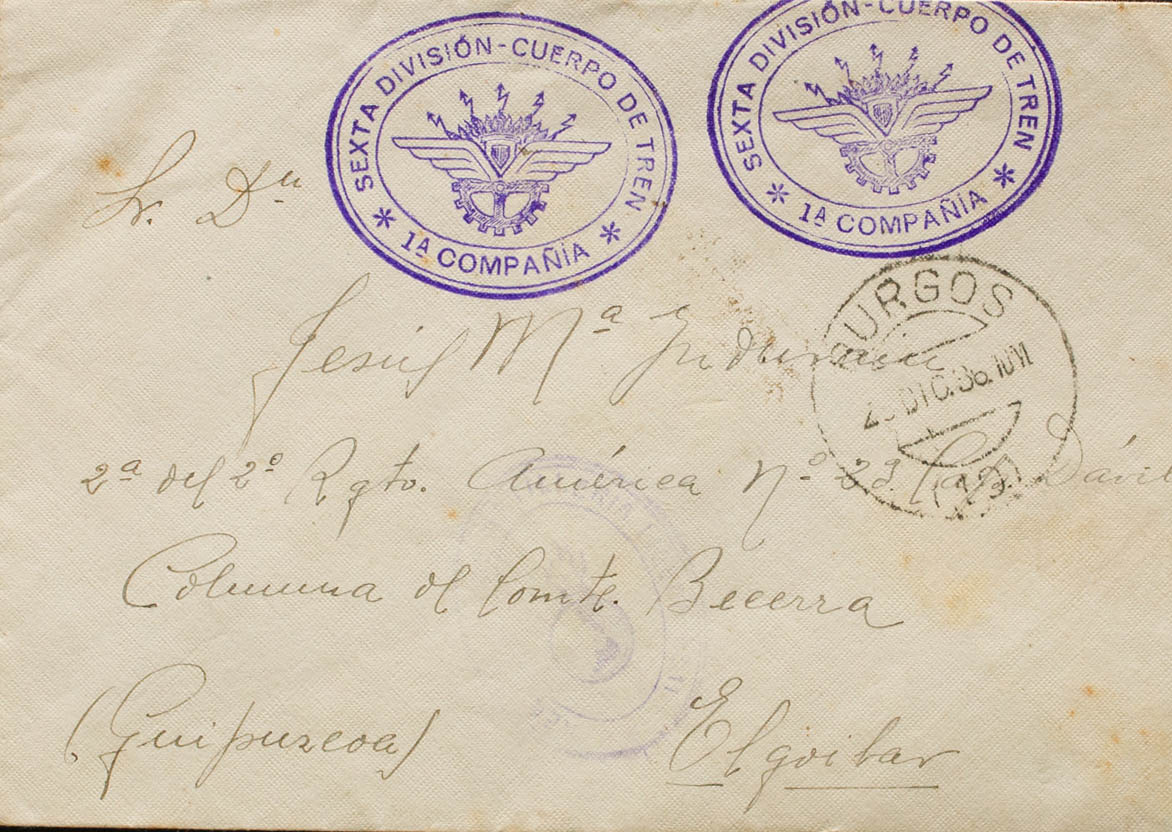 SEXTA DIVISIÓN-CUERPO DE TREN
* 1ª COMPAÑÍA *
SEXTA DIVISIÓN-CUERPO DE TREN
* 1ª COMPAÑÍA *
Sr. Dn
BURGOS
DIC.36.10M
(19)
Jesús Mª
2ª del 2º Rgto. América Nº 23. Dávil
Columna del Comte. Becerra
(Guipuzcoa) Elgoibar